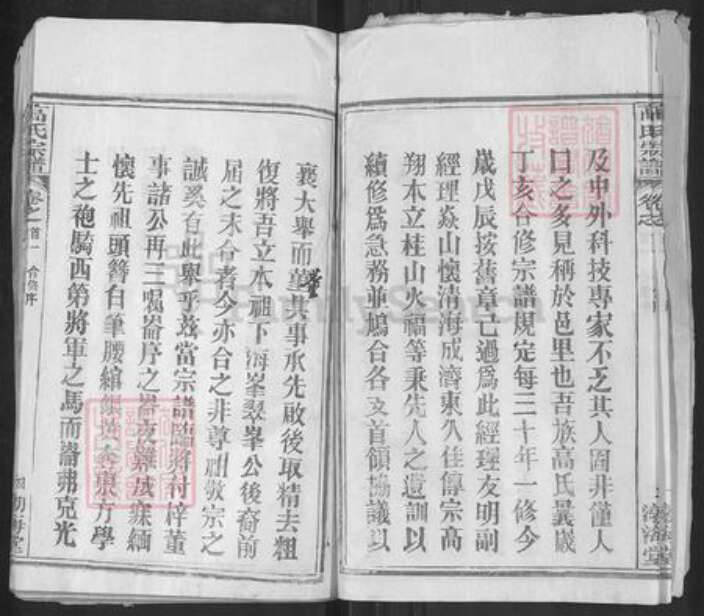 及中外科技專家不乏其人固非僅人
口之多見稱於邑里也吾族高氏曩歲
丁亥合修宗譜規定每三十年一修今
歲戊辰按舊章已過為此經理友明副
經理焱山懷清海成濟東久佳傳宗高
翔木立桂山火福等秉先人之遺訓以
續修為急務並鳩合各支首領協議以
襄大舉而董其事承先啟後取精去粗
董
復將吾立本祖下海峯翠峯公後裔前
屆之未合者今亦合之非尊祖敬宗之
誠奚有此舉乎茲當宗譜臨將付梓董
事諸公再三囑崙序之崙夜寐緬
懷先祖頭簪白筆腰綰銀黃東方學
士之袍騎西第將軍之馬而崙弗克光
高氏宗譜
卷之首一
合修序
FamilySearch